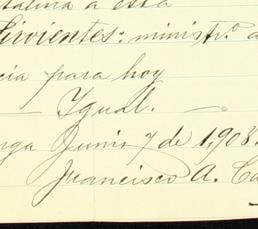 talina a esta
Sirvientes: ministr.º a
cia para hoy
Igual.
Junio 7 de 1,908.
Francisco A. Ca